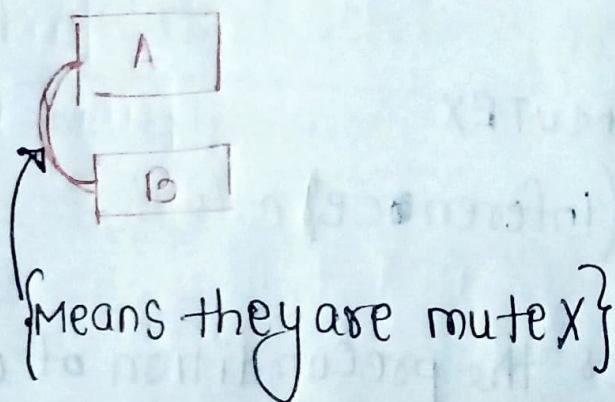 A
B
{Means they are mutex}